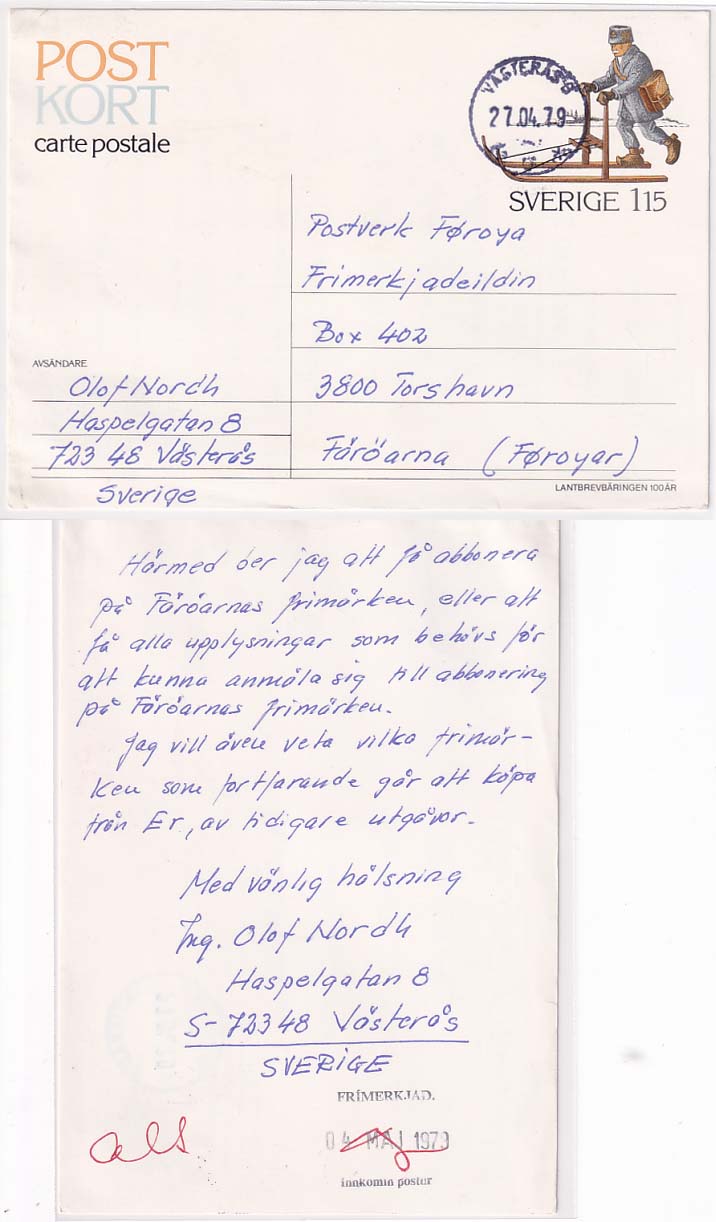 POST
KORT
carte postale
VÄSTERÅS
27.04.79
SVERIGE 115
Postverk Føroya
Frimerkjadeildin
Box 402
3800 Torshavn
Färöarna (Føroyar)
AVSÄNDARE
Olof Nordh
Haspelgatan 8
723 48 Västerås
Sverige
LANTBREVBÄRINGEN 100 ÅR
Härmed ber jag att få abbonera
på Färöarnas frimärken, eller att
få alla upplysningar som behövs för
att kunna anmäla sig till abbonering
på Färöarnas frimärken.
Jag vill även veta vilka frimär-
ken som fortfarande går att köpa
från Er, av tidigare utgåvor.
Med vänlig hälsning
Ing. Olof Nordh
Haspelgatan 8
S-723 48 Västerås
SVERIGE
FRÍMERKJAD.
04 MAI 1979
innkomin postur